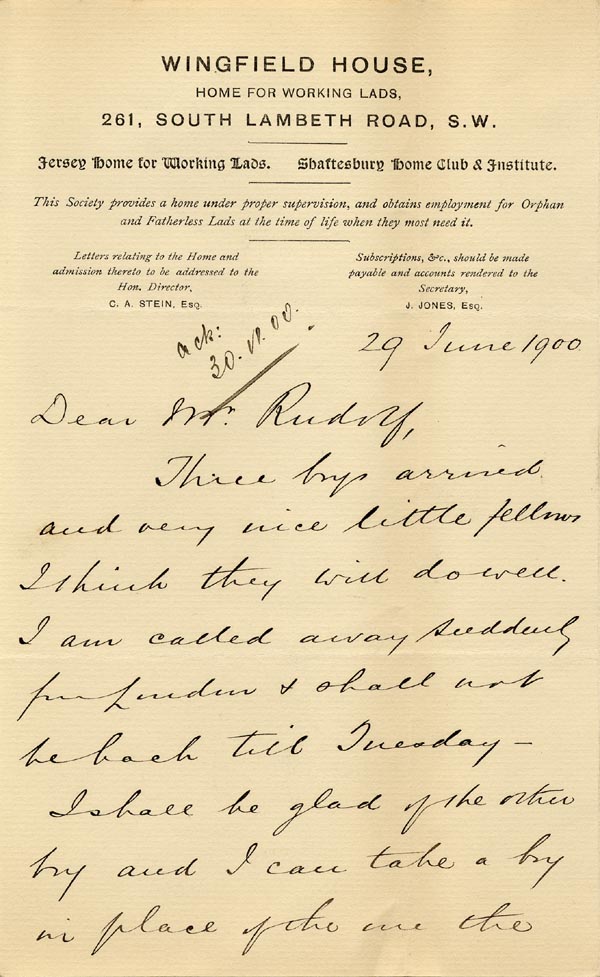 WINGFIELD HOUSE,
HOME FOR WORKING LADS,
261, SOUTH LAMBETH ROAD, S.W.
Jersey Home for Working Lads. Shaftesbury Home Club & Institute.
This Society provides a home under proper supervision, and obtains employment for Orphan
and Fatherless Lads at the time of life when they most need it.
Letters relating to the Home and
admission thereto to be addressed to the
Hon. Director,
C. A. STEIN, Esq.
Subscriptions, &c., should be made
payable and accounts rendered to the
Secretary,
J. JONES, Esq.
ack:
30.VI.00.
29 June 1900
Dear Mr. Rudolf,
Three boys arrived
and very nice little fellows
I think they will do well.
I am called away suddenly
from London & shall not
be back till Tuesday –
I shall be glad of the other
boy and I can take a boy
in place of the one the